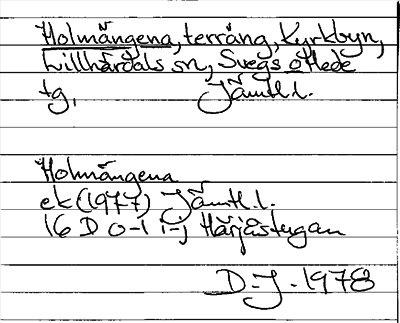 Holmängena, terräng, Kyrkbyn,
Lillhärdals sn, Svegs
tg, Jämtl.l.
Holmängena
ek (1977) Jämtl.l.
16 D 0-1 i-j Härjåstugan
D-J. 1978